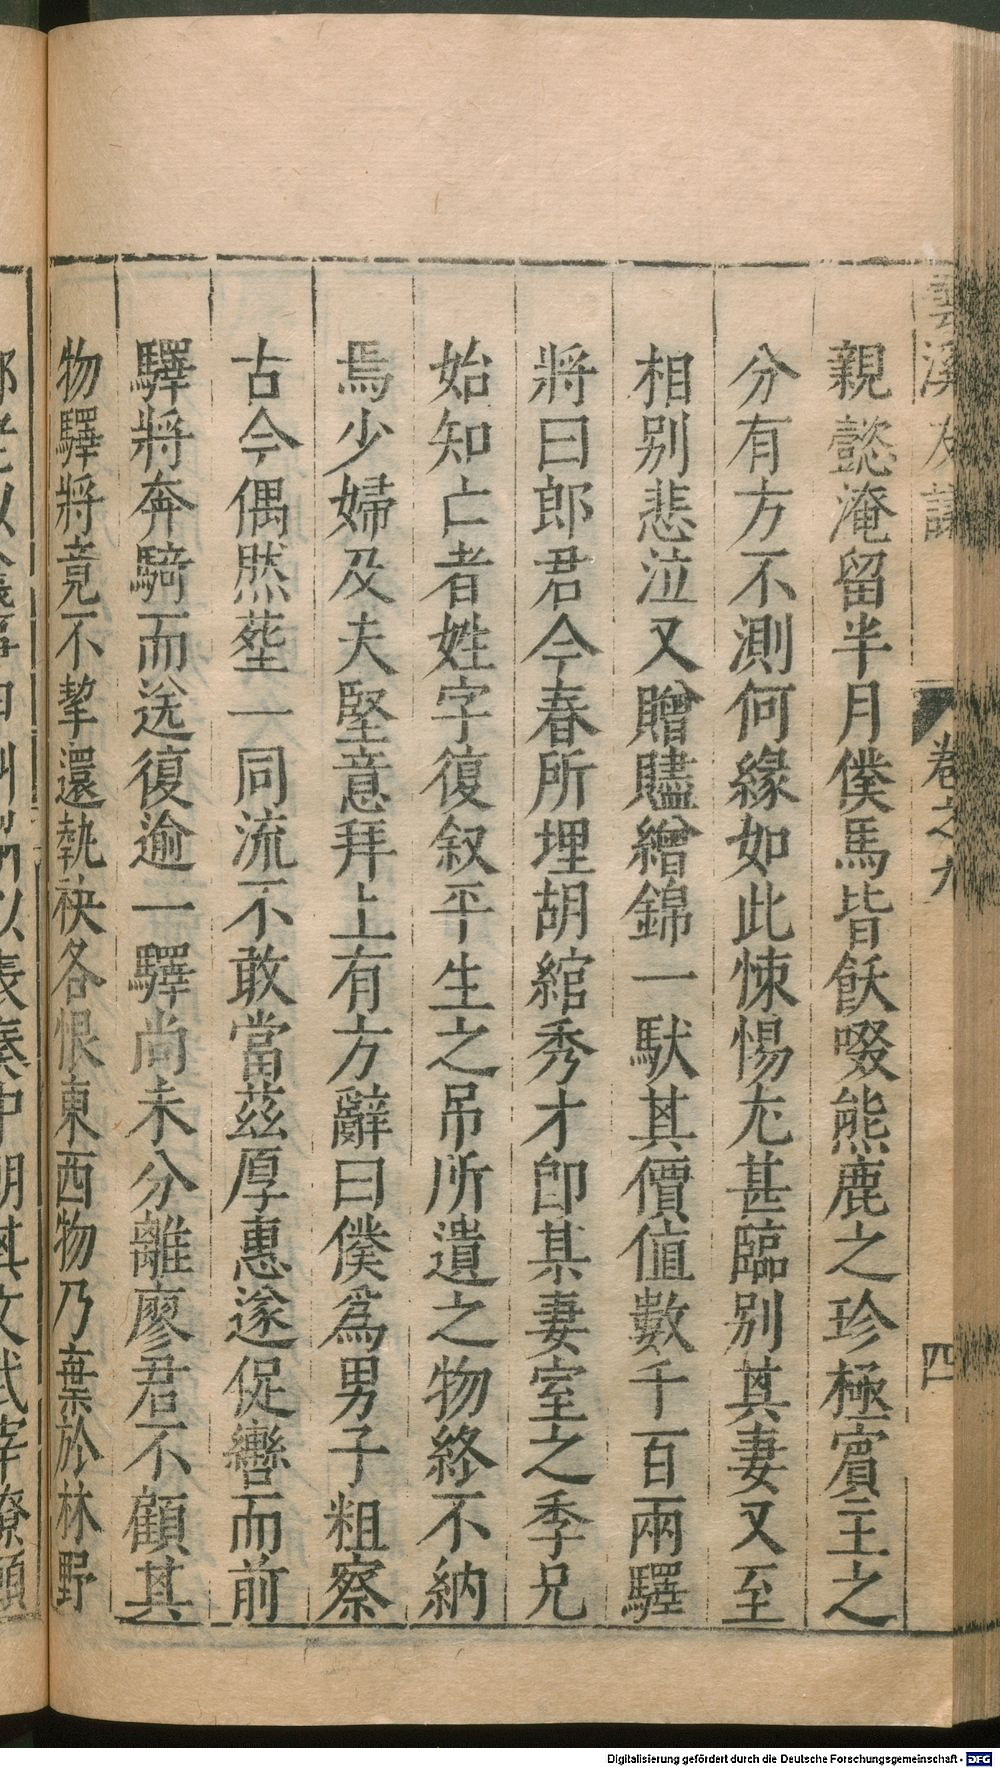 雲溪友議
卷之九
四
親懿淹留半月僕馬皆飫啜熊鹿之珍極賓主之
分有方不測何緣如此悚惕尤甚臨别其妻又至
相别悲泣又贈贐繒錦一馱其價值數千百兩驛
將曰郎君今春所埋胡綰秀才即某妻室之季兄
始知亡者姓字復叙平生之吊所遺之物終不納
焉少婦及夫堅意拜上有方辭曰僕爲男子粗察
古今偶然塟一同流不敢當茲厚惠遂促轡而前
驛將奔騎而送復逾一驛尚未分離廖君不顧其
物驛將竟不挈還執袂各恨東西物乃棄於林野
Digitalisierung gefördert durch die Deutsche Forschungsgemeinschaft - DFG